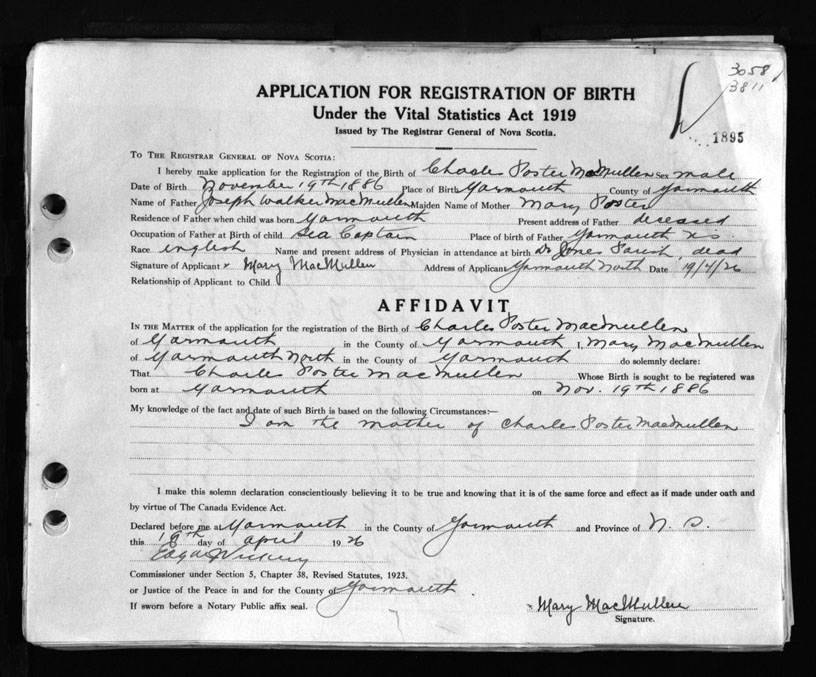 3058
3811
1895
APPLICATION FOR REGISTRATION OF BIRTH
Under the Vital Statistics Act 1919
Issued by The Registrar General of Nova Scotia.
TO THE REGISTRAR GENERAL OF NOVA SCOTIA:
I hereby make application for the Registration of the Birth of Charles Poster MacMullen Sex male
Date of Birth November 19th 1886 Place of Birth Yarmouth County of Yarmouth
Name of Father Joseph Walker MacMullen Maiden Name of Mother Mary Poster
Residence of Father when child was born Yarmouth Present address of Father deceased
Occupation of Father at Birth of child Sea Captain Place of birth of Father Yarmouth
Race english Name and present address of Physician in attendance at birth Dr Jones Parish, dead
Signature of Applicant x Mary MacMullen Address of Applicant Yarmouth North Date 19/4/26
Relationship of Applicant to Child
AFFIDAVIT
IN THE MATTER of the application for the registration of the Birth of Charles Poster MacMullen
of Yarmouth in the County of Yarmouth I, Mary MacMullen
of Yarmouth North in the County of Yarmouth do solemnly declare:
That Charles Poster MacMullen Whose Birth is sought to be registered was
born at Yarmouth on Nov. 19th 1886
My knowledge of the fact and date of such Birth is based on the following Circumstances:—
I am the mother of Charles Poster MacMullen
I make this solemn declaration conscientiously believing it to be true and knowing that it is of the same force and effect as if made under oath and
by virtue of The Canada Evidence Act.
Declared before me at Yarmouth in the County of Yarmouth and Province of N. S.
this 19th day of april 1926
Edgar Vickery
Commissioner under Section 5, Chapter 38, Revised Statutes, 1923.
or Justice of the Peace in and for the County of Yarmouth
If sworn before a Notary Public affix seal.
x Mary MacMullen
Signature.